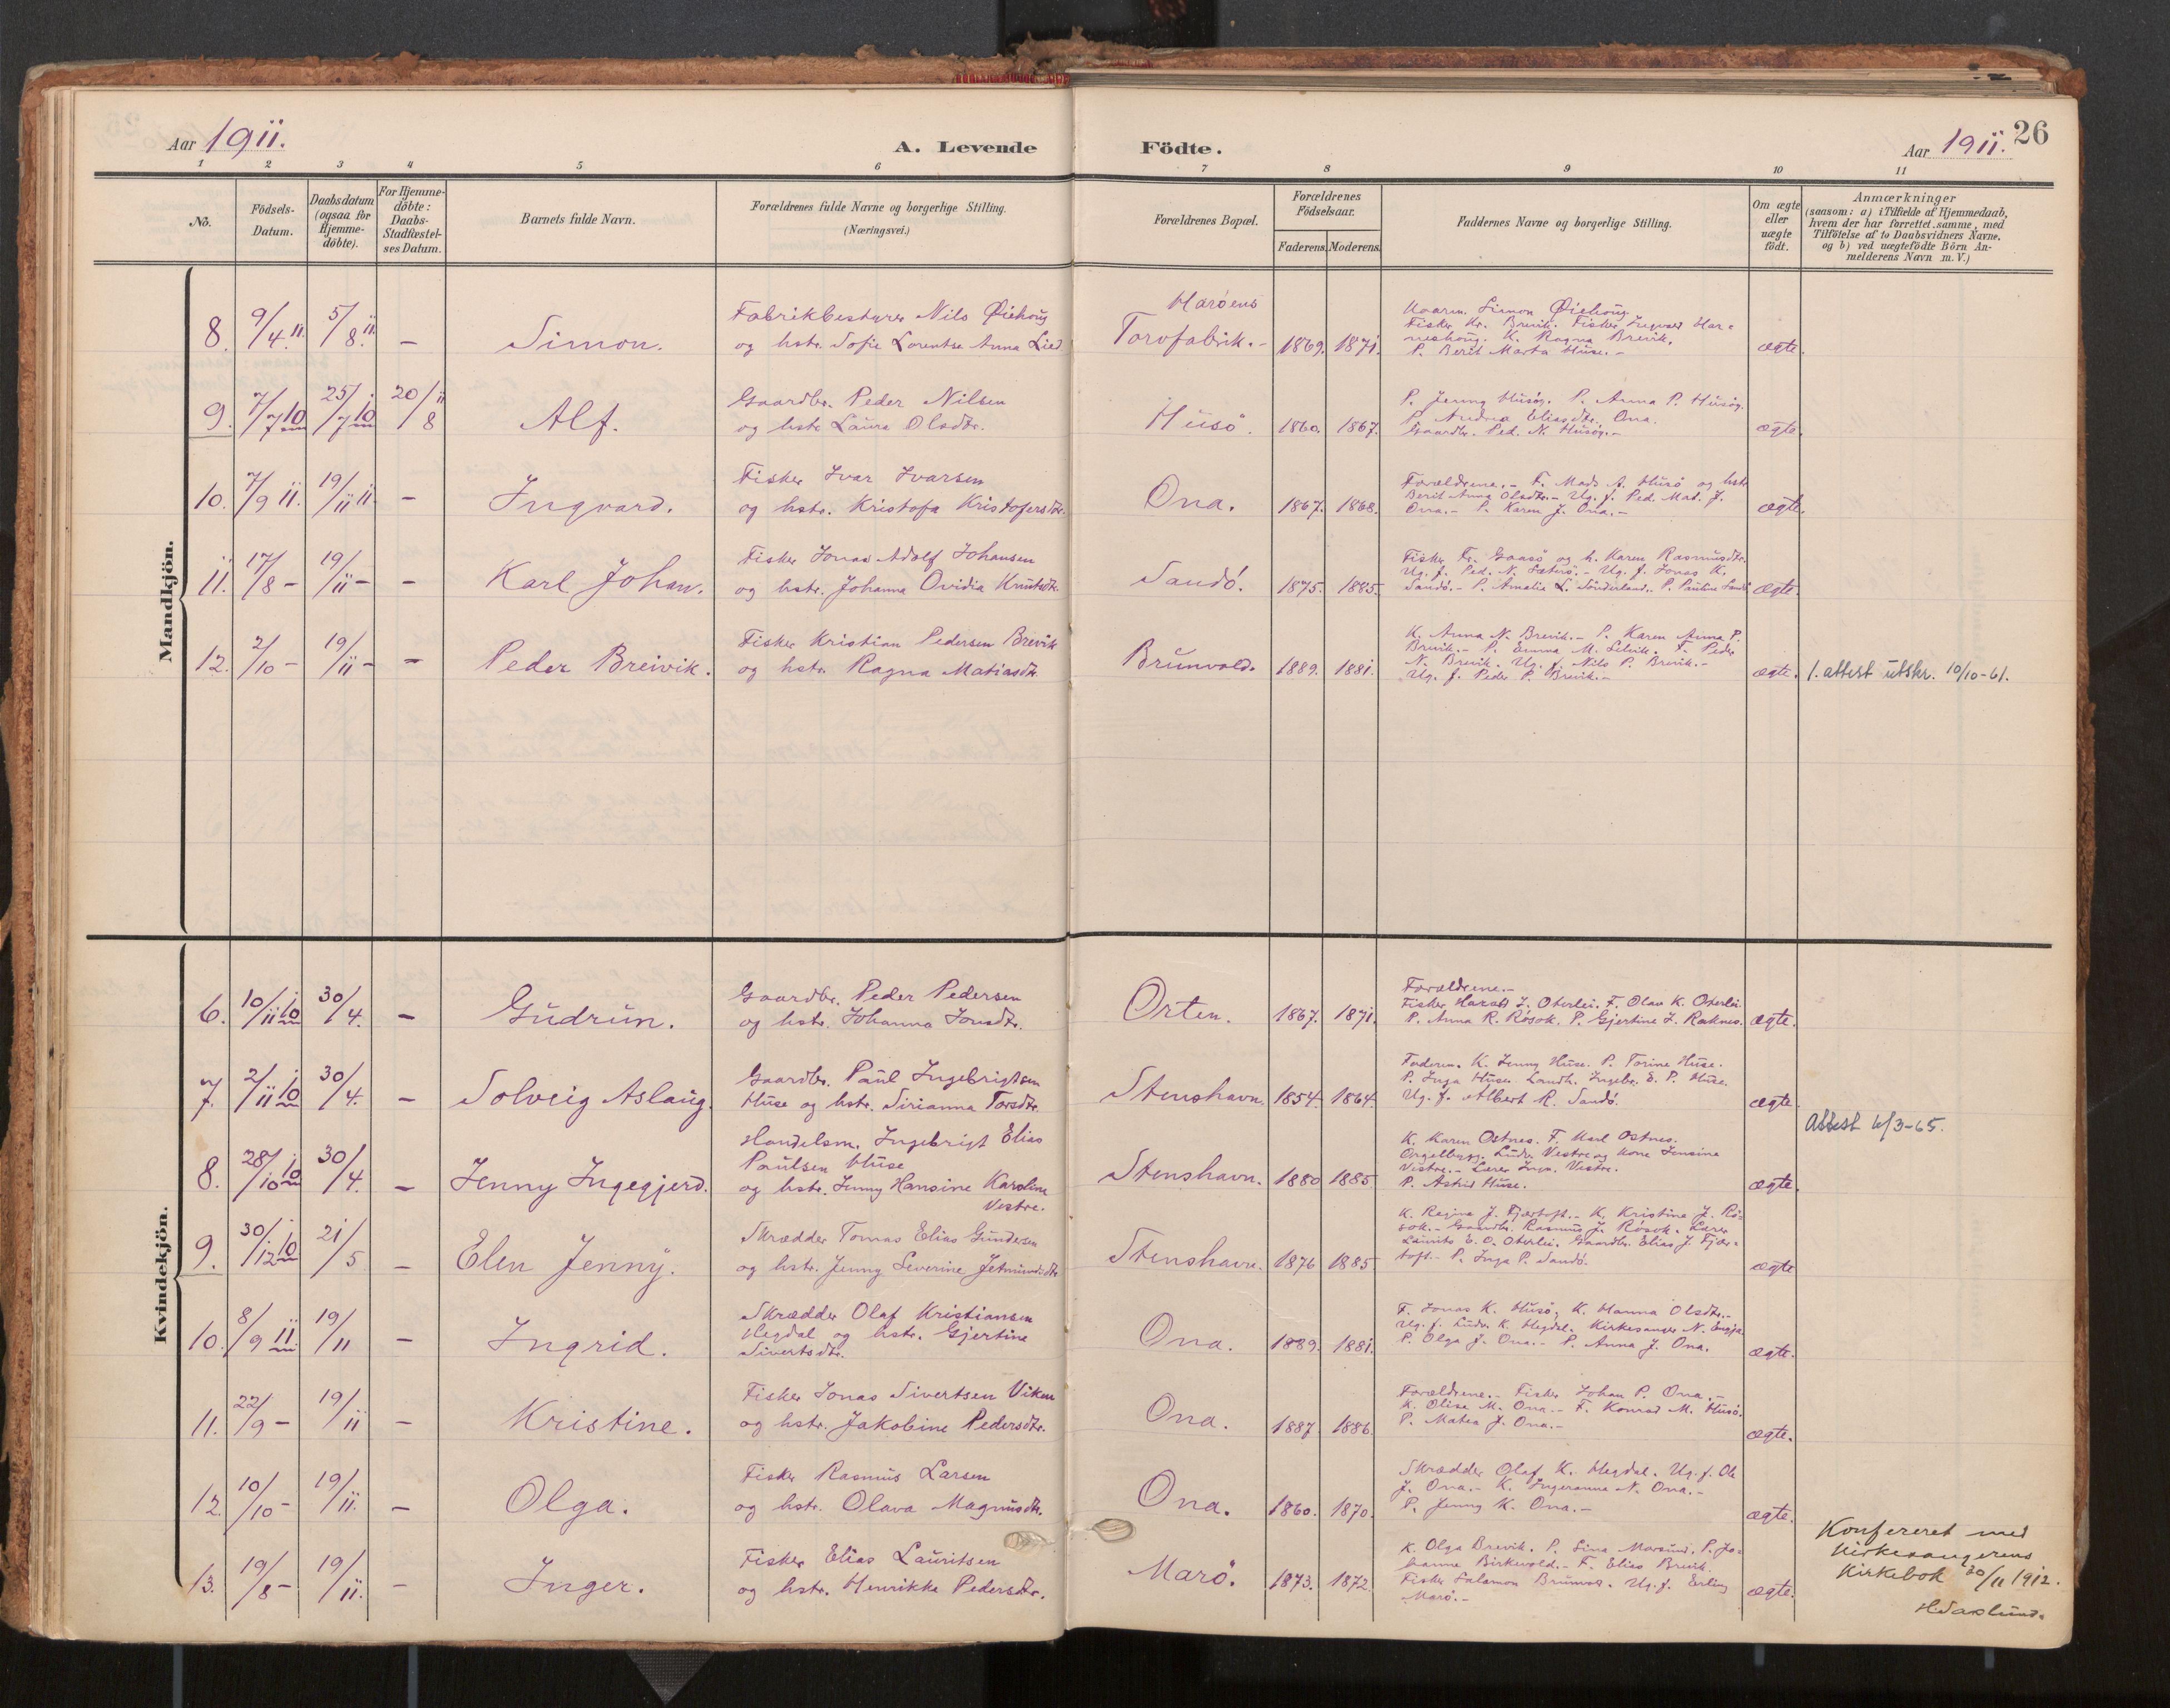 Aar 1911.
A. Levende Födte.
Aar 1911. 26
1 2 3 4 5 6 7 8 9 10 11
No.
Födsels-
Datum.
Daabsdatum
(ogsaa for
Hjemme-
döbte).
For Hjemme-
döbte:
Daabs-
Stadfæstel-
ses Datum.
Barnets fulde Navn.
Forældrenes fulde Navne og borgerlige Stilling.
(Næringsvei.)
Forældrenes Bopæl.
Forældrenes
Födselsaar.
Faderens. Moderens.
Faddernes Navne og borgerlige Stilling.
Om ægte
eller
uægte
födt.
Anmærkninger
(saasom: a) i Tilfælde af Hjemmedaab,
hvem der har forrettet samme, med
Tilföielse af to Daabsvidners Navne,
og b) ved uægtefödte Börn An-
melderens Navn m. V.)
Mandkjön.
8. 9/4 11. 5/8 11. – Simon.
Fabrikbestyrer Nils Øiehoug
og hstr. Sofie Lorentse Anna Lied
Harøens
Torvfabrik. – 1869. 1871.
Kaarm. Simon Øiehoug.
Fisker Kr. Brevik. Fisker Ingvald Har-
neshoug. K. Ragna Brevik.
P. Berit Marta Huse. –
ægte.
9. 7/7 10 25/7 10 20/8 11 Alf.
Gaardbr. Peder Nilsen
og hstr. Laura Olsdtr.
Husö. 1860. 1867.
P. Jenny Husøy. P. Anna P. Husøy.
P. Andrea Eliasdtr. Ona.
Gaardbr. Ped. N. Husøy. –
ægte.
10. 7/9 11. 19/11 11. – Ingvard.
Fisker Ivar Ivarsen
og hstr. Kristofa Kristofersdtr.
Ona. 1867. 1868.
Forældrene. – F. Mads A. Husö og hstr
Berit Anna Olsdtr. – Ug. f. Ped. Mat. J.
Ona. – P. Karen J. Ona. –
ægte.
11. 17/8 – 19/11 – – Karl Johan.
Fisker Jonas Adolf Johansen
og hstr. Johanna Ovidia Knutsdtr.
Sandö. 1875. 1885.
Fisker Fr. Gaasö og h. Karen Rasmusdtr.
Ug. f. Ped. N. Sæterö. – Ug. f. Jonas K.
Sandö. – P. Amalie L. Sönderland. P. Pauline Sandö
ægte.
12. 2/10 – 19/11 – – Peder Breivik.
Fisker Kristian Pedersen Brevik
og hstr. Ragna Matiasdtr.
Brunvold. 1889. 1881.
K. Anna N. Brevik. – P. Karen Anna P.
Brevik. – P. Emma M. Lilvik. F. Peder
N. Brevik. Ug. f. Nils P. Brevik. –
Ug. f. Peder P. Brevik. –
ægte. 1. attest utskr. 10/10-61.
Kvindekjön.
6. 10/11 10 30/4. – Gudrun.
Gaardbr. Peder Pedersen
og hstr. Johanna Jonsdtr.
Orten. 1867. 1871.
Forældrene. –
Fisker Harald J. Oterlei. F. Olav K. Oterlei.
P. Anna R. Røsok. P. Gjertine J. Raknes.
ægte.
7. 2/11 10 30/4. – Solveig Aslaug.
Gaardbr. Paul Ingebrigtsen
Huse og hstr. Sirianna Torsdtr.
Stenshavn. 1854. 1864.
Faderen. K. Jenny Huse. P. Torine Huse.
P. Inga Huse. Landh. Ingebr. E. P. Huse.
Ug. f. Albert R. Sandö.
ægte.
Attest 6/3-65.
8. 28/10 10 30/4. – Jenny Ingegjerd.
Handelsm. Ingebrigt Elias
Paulsen Huse
og hstr. Jenny Hansine Karoline
Vestre.
Stenshavn. 1880 1885
K. Karen Ostnes. F. Karl Ostnes.
Orgelbygg. Ludv. Vestre og kone Jensine
Vestre. – Lærer Inga. Vestre.
P. Astrid Huse.
ægte.
9. 30/12 10 21/5 – Elen Jenny.
Skrædder Tomas Elias Gundersen
og hstr. Jenny Severine Jetmundsdtr
Stenshavn. 1876 1885
K. Regine J. Fjærtoft. – K. Kristine J. Rö-
sok. – Gaardbr. Rasmus J. Rösok. Lærer
Laurits E. O. Oterlei. Gaardbr. Elias J. Fjær-
toft. – P. Inga P. Sandö.
ægte
10. 8/9 11. 19/11 – Ingrid.
Skrædder Olaf Kristiansen
Hegdal og hstr. Gjertine
Sivertsdtr.
Ona. 1889. 1881.
F. Jonas K. Husö. K. Hanna Olsdtr. –
Ug. f. Ludv. K. Hegdal. Kirkesanger N.
P. Olga J. Ona. – P. Anna J. Ona.
ægte.
11. 22/9 – 19/11 – Kristine.
Fisker Jonas Sivertsen Viken
og hstr. Jakobine Pedersdtr.
Ona. 1887 1886.
Forældrene. – Fisker Johan P. Ona. –
K. Olise M. Ona. – F. Konrad M. Husö.
P. Matea J. Ona. –
ægte.
12. 10/10 – 19/11. – Olga.
Fisker Rasmus Larsen
og hstr. Olava Magnusdtr.
Ona. 1860. 1870.
Skrædder Olaf K. Hegdal. Ug. f. Ole
J. Ona. – K. Ingeranna N. Ona. –
P. Jenny K. Ona. –
ægte.
13. 19/8 – 19/11. – Inger.
Fisker Elias Lauritsen
og hstr. Henrikke Pedersdtr.
Marö. 1873. 1872.
K. Olga Brevik. P. Lina Morsund. P. Jo-
hanne Birkevold. – F. Elias Brevik.
Fisker Salamon Brunvol. Ug. f. Erling
Marö. –
ægte.
Konfereret med
Kirkesangerens
Kirkebok 30/11 1912.
H. Saxlund.